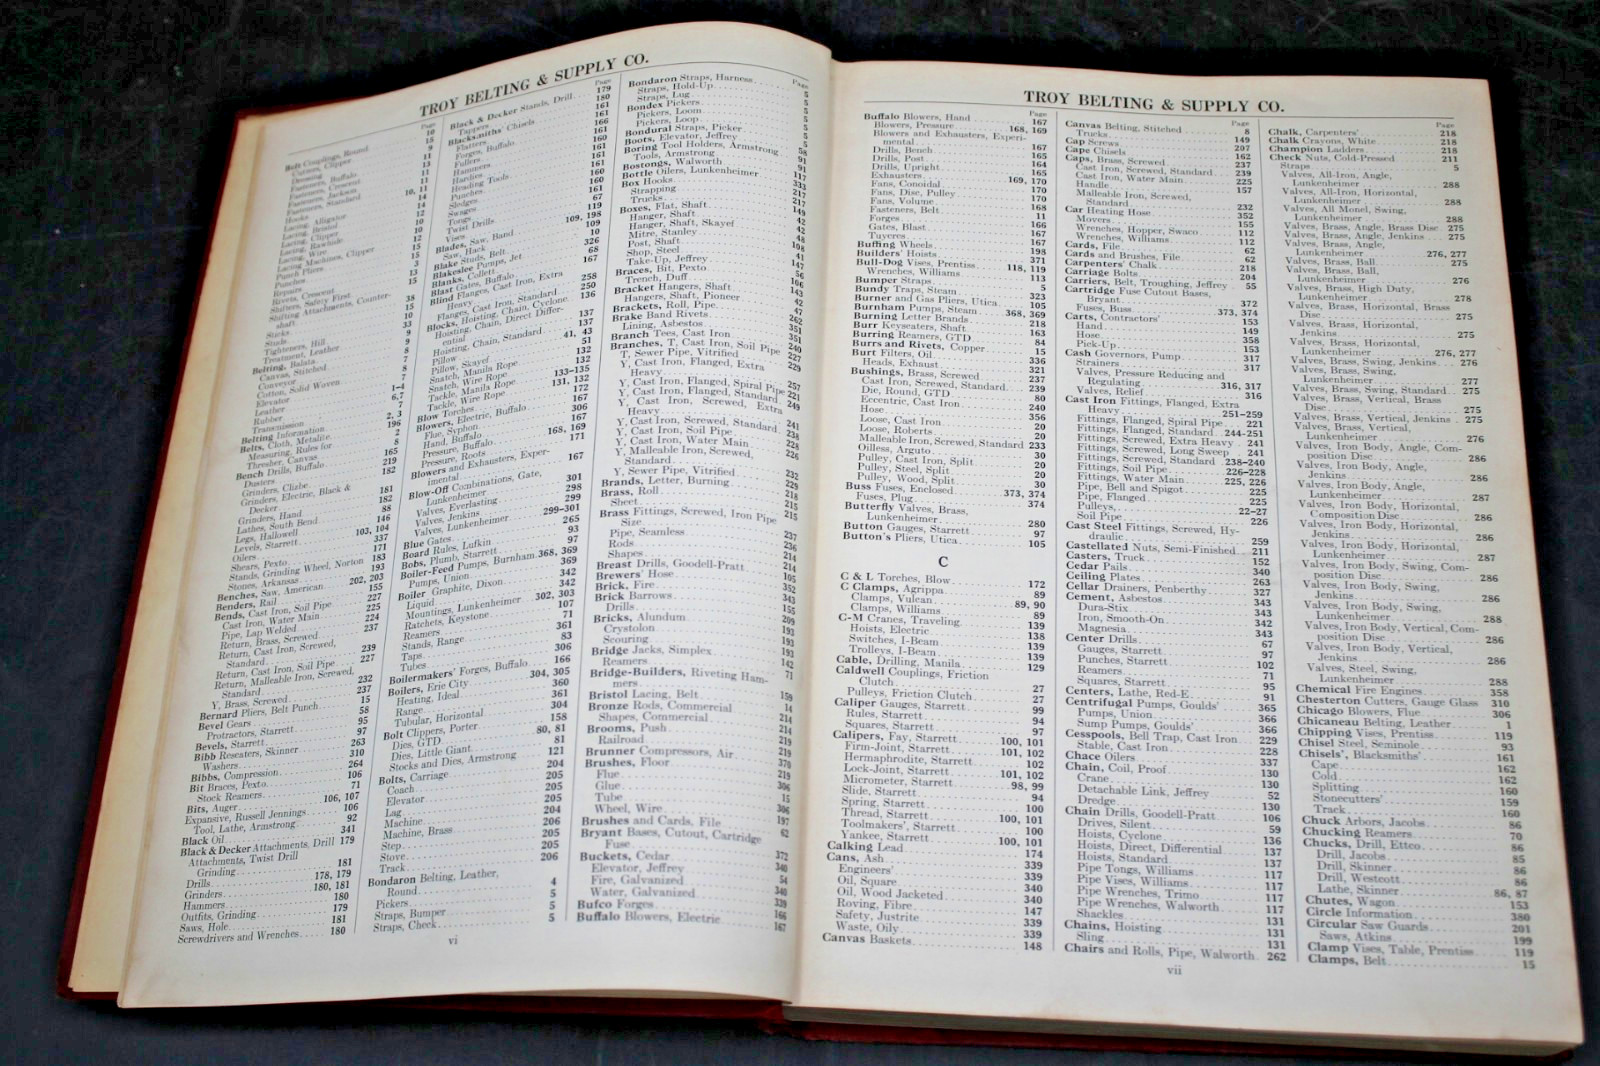 TROY BELTING & SUPPLY CO.
Page
Bolt Couplings, Round 10
Cutters, Clipper 15
Dressing 9
Fasteners, Buffalo 11
Fasteners, Crescent 13
Fasteners, Jackson 11
Fasteners, Standard 11
Hooks 10, 11
Lacing, Alligator
Lacing, Bristol
Lacing, Clipper
Lacing, Rawhide
Lacing, Wire
Lacing Machines, Clipper
Punch Pliers
Punches
Repairs
Rivets, Crescent
Shifters, Safety First
Shifting Attachments, Counter-
shaft
Sticks
Studs
Tighteners, Hill
Treatment, Leather
Belting, Balata
Canvas, Stitched
Conveyor
Cotton, Solid Woven
Elevator
Leather 1-4
Rubber 6,7
Transmission
Belting Information 196
Belts, Cloth, Metalite
Measuring, Rules for
Thresher, Canvas
Bench Drills, Buffalo 165
Dusters 219
Grinders, Clizbe 182
Grinders, Electric, Black &
Decker 181
Grinders, Hand 182
Lathes, South Bend 88
Legs, Hallowell 146
Levels, Starrett 103, 104
Oilers 337
Shears, Pexto 171
Stands, Grinding Wheel, Norton 183
Stones, Arkansas 193
Benches, Saw, American 202, 203
Benders, Rail 155
Bends, Cast Iron, Soil Pipe 227
Cast Iron, Water Main 225
Pipe, Lap Welded 224
Return, Brass, Screwed 237
Return, Cast Iron, Screwed,
Standard 239
Return, Cast Iron, Soil Pipe 227
Return, Malleable Iron, Screwed,
Standard 232
Y, Brass, Screwed 237
Bernard Pliers, Belt Punch 15
Bevel Gears 58
Protractors, Starrett 95
Bevels, Starrett 97
Bibb Reseaters, Skinner 263
Washers 310
Bibbs, Compression 264
Bit Braces, Pexto 106
Stock Reamers 71
Bits, Auger 106, 107
Expansive, Russell Jennings 106
Tool, Lathe, Armstrong 92
Black Oil 341
Black & Decker Attachments, Drill 179
Attachments, Twist Drill
Grinding 181
Drills 178, 179
Grinders 180, 181
Hammers 180
Outfits, Grinding 179
Saws, Hole 181
Screwdrivers and Wrenches 180
Page
Black & Decker Stands, Drill 179
Tappers 180
Blacksmiths' Chisels 161
Flatters 161
Forges, Buffalo 166
Fullers 161
Hammers 160
Hardies 161
Heading Tools 161
Punches 160
Sledges 160
Swages 161
Tongs 67
Twist Drills 119
Vises 109, 198
Blades, Saw, Band 109
Saw, Hack 10
Blake Studs, Belt 326
Blakeslee Pumps, Jet 68
Blanks, Collett 167
Blast Gates, Buffalo
Blind Flanges, Cast Iron, Extra
Heavy 258
Flanges, Cast Iron, Standard 250
Blocks, Hoisting, Chain, Cyclone 136
Hoisting, Chain, Direct Differ-
ential 137
Hoisting, Chain, Standard 137
Pillow, Skayef 41, 43
Snatch, Manila Rope 51
Snatch, Wire Rope 132
Tackle, Manila Rope 132
Tackle, Wire Rope 133-135
Blow Torches 131, 132
Blowers, Electric, Buffalo 172
Flue, Syphon 167
Hand, Buffalo 306
Pressure, Buffalo 167
Pressure, Roots 168, 169
Blowers and Exhausters, Exper- 171
imental 167
Blow-Off Combinations, Gate,
Lunkenheimer 301
Valves, Everlasting 298
Valves, Jenkins 299
Valves, Lunkenheimer 299-301
Blue Gates 265
Board Rules, Lufkin 93
Bobs, Plumb, Starrett 97
Boiler-Feed Pumps, Burnham 368, 369
Pumps, Union 369
Boiler Graphite, Dixon 342
Liquid 342
Mountings, Lunkenheimer 302, 303
Ratchets, Keystone 107
Reamers 71
Stands, Range 361
Taps 83
Tubes 306
Boilermakers' Forges, Buffalo 166
Boilers, Erie City 304, 305
Heating, Ideal 360
Range 361
Tubular, Horizontal 304
Bolt Clippers, Porter 158
Dies, GTD 80, 81
Dies, Little Giant 81
Stocks and Dies, Armstrong 121
Bolts, Carriage 204
Coach 205
Elevator 205
Lag 205
Machine 204
Machine, Brass 206
Step 205
Stove 205
Track 206
Bondaron Belting, Leather,
Round 4
Pickers 5
Straps, Bumper 5
Straps, Check 5
Page
Bondaron Straps, Harness 5
Straps, Hold-Up 5
Straps, Lug 5
Bondex Pickers 5
Pickers, Loom 5
Pickers, Loop 5
Bondural Straps, Picker 5
Boots, Elevator, Jeffrey
Boring Tool Holders, Armstrong
Tools, Armstrong 91
Bostongs, Walworth
Bottle Oilers, Lunkenheimer
Box Hooks
Strapping
Trucks
Boxes, Flat, Shaft
Hanger, Shaft
Hanger, Shaft, Skayef
Mitre, Stanley
Post, Shaft
Shop, Steel
Take-Up, Jeffrey
Braces, Bit, Pexto
Trench, Duff
Bracket Hangers, Shaft
Hangers, Shaft, Pioneer
Brackets, Roll, Pipe
Brake Band Rivets
Lining, Asbestos
Branch Tees, Cast Iron
Branches, T, Cast Iron, Soil Pipe
T, Sewer Pipe, Vitrified
Y, Cast Iron, Flanged, Extra
Heavy 257
Y, Cast Iron, Flanged, Spiral Pipe 221
Y, Cast Iron, Flanged, Standard 249
Y, Cast Iron, Screwed, Extra
Heavy 241
Y, Cast Iron, Screwed, Standard 238
Y, Cast Iron, Soil Pipe 228
Y, Cast Iron, Water Main 226
Y, Malleable Iron, Screwed,
Standard 232
Y, Sewer Pipe, Vitrified 229
Brands, Letter, Burning 218
Brass, Roll 215
Sheet 215
Brass Fittings, Screwed, Iron Pipe
Size 237
Pipe, Seamless 236
Rods 214
Shapes 214
Breast Drills, Goodell-Pratt 105
Brewers' Hose 352
Brick, Fire 343
Brick Barrows 155
Drills 299
Bricks, Alundum 193
Crystolon 193
Scouring 193
Bridge Jacks, Simplex 142
Reamers 71
Bridge-Builders, Riveting Ham-
mers 159
Bristol Lacing, Belt 14
Bronze Rods, Commercial 214
Shapes, Commercial 214
Brooms, Push 219
Railroad 219
Brunner Compressors, Air 370
Brushes, Floor 219
Flue 306
Glue 15
Tube 306
Wheel, Wire 197
Brushes and Cards, File 62
Bryant Bases, Cutout, Cartridge
Fuse 372
Buckets, Cedar 340
Elevator, Jeffrey 54
Fire, Galvanized 340
Water, Galvanized 339
Bufco Forges 166
Buffalo Blowers, Electric 167
vi
TROY BELTING & SUPPLY CO.
Page
Buffalo Blowers, Hand 167
Blowers, Pressure 168, 169
Blowers and Exhausters, Experi-
mental 167
Drills, Bench 165
Drills, Post 164
Drills, Upright 165
Exhausters 169, 170
Fans, Conoidal 170
Fans, Disc, Pulley 170
Fans, Volume 168
Fasteners, Belt 11
Forges 166
Gates, Blast 167
Tuyeres 167
Buffing Wheels 198
Builders' Hoists 371
Bull-Dog Vises, Prentiss 118, 119
Wrenches, Williams 113
Bumper Straps 5
Bundy Traps, Steam 323
Burner and Gas Pliers, Utica 105
Burnham Pumps, Steam 368, 369
Burning Letter Brands 218
Burr Keyseaters, Shaft 163
Burring Reamers, GTD 84
Burrs and Rivets, Copper 15
Burt Filters, Oil 336
Heads, Exhaust 321
Bushings, Brass, Screwed 237
Cast Iron, Screwed, Standard 239
Die, Round, GTD 80
Eccentric, Cast Iron 240
Hose 356
Loose, Cast Iron 20
Loose, Roberts 20
Malleable Iron, Screwed, Standard 233
Oilless, Arguto 30
Pulley, Cast Iron, Split 20
Pulley, Steel, Split 20
Pulley, Wood, Split 30
Buss Fuses, Enclosed 373, 374
Fuses, Plug 374
Butterfly Valves, Brass,
Lunkenheimer 280
Button Gauges, Starrett 97
Button's Pliers, Utica 105
C
C & L Torches, Blow 172
C Clamps, Agrippa 89
Clamps, Vulcan 89, 90
Clamps, Williams 89
C-M Cranes, Traveling 139
Hoists, Electric 138
Switches, I-Beam 139
Trolleys, I-Beam 139
Cable, Drilling, Manila 129
Caldwell Couplings, Friction
Clutch 27
Pulleys, Friction Clutch 27
Caliper Gauges, Starrett 99
Rules, Starrett 94
Squares, Starrett 97
Calipers, Fay, Starrett 100, 101
Firm-Joint, Starrett 101, 102
Hermaphrodite, Starrett 102
Lock-Joint, Starrett 101, 102
Micrometer, Starrett 98, 99
Slide, Starrett 94
Spring, Starrett 100
Thread, Starrett 100, 101
Toolmakers', Starrett 100
Yankee, Starrett 100, 101
Calking Lead 174
Cans, Ash 339
Engineers' 339
Oil, Square 340
Oil, Wood Jacketed 340
Roving, Fibre 147
Safety, Justrite 339
Waste, Oily 339
Canvas Baskets 148
Page
Canvas Belting, Stitched 8
Trucks 149
Cap Screws 207
Cape Chisels 162
Caps, Brass, Screwed 237
Cast Iron, Screwed, Standard 239
Cast Iron, Water Main 225
Handle 157
Malleable Iron, Screwed,
Standard 232
Car Heating Hose 352
Movers 155
Wrenches, Hopper, Swaco 112
Wrenches, Williams 112
Cards, File 62
Cards and Brushes, File 62
Carpenters' Chalk 218
Carriage Bolts 204
Carriers, Belt, Troughing, Jeffrey 55
Cartridge Fuse Cutout Bases,
Bryant 372
Fuses, Buss 373, 374
Carts, Contractors' 153
Hand 149
Hose 358
Pick-Up 153
Cash Governors, Pump 317
Strainers 317
Valves, Pressure Reducing and
Regulating 316, 317
Valves, Relief 316
Cast Iron Fittings, Flanged, Extra
Heavy 251-259
Fittings, Flanged, Spiral Pipe 221
Fittings, Flanged, Standard 244-251
Fittings, Screwed, Extra Heavy 241
Fittings, Screwed, Long Sweep 241
Fittings, Screwed, Standard 238-240
Fittings, Soil Pipe 226-228
Fittings, Water Main 225, 226
Pipe, Bell and Spigot 225
Pipe, Flanged 225
Pulleys 22-27
Soil Pipe 226
Cast Steel Fittings, Screwed, Hy-
draulic 259
Castellated Nuts, Semi-Finished 211
Casters, Truck 152
Cedar Pails 340
Ceiling Plates 263
Cellar Drainers, Penberthy 327
Cement, Asbestos 343
Dura-Stix 343
Iron, Smooth-On 342
Magnesia 343
Center Drills 67
Gauges, Starrett 97
Punches, Starrett 102
Reamers 71
Squares, Starrett 95
Centers, Lathe, Red-E 91
Centrifugal Pumps, Goulds' 365
Pumps, Union 366
Sump Pumps, Goulds' 366
Cesspools, Bell Trap, Cast Iron 229
Stable, Cast Iron 228
Chace Oilers 337
Chain, Coil, Proof 130
Crane 130
Detachable Link, Jeffrey 52
Dredge 130
Chain Drills, Goodell-Pratt 106
Drives, Silent 59
Hoists, Cyclone 136
Hoists, Direct, Differential 137
Hoists, Standard 137
Pipe Tongs, Williams 117
Pipe Vises, Williams 117
Pipe Wrenches, Trimo 117
Pipe Wrenches, Walworth 117
Shackles 131
Chains, Hoisting 131
Sling 131
Chairs and Rolls, Pipe, Walworth 262
Page
Chalk, Carpenters' 218
Chalk Crayons, White 218
Champion Ladders 218
Check Nuts, Cold-Pressed 211
Straps 5
Valves, All-Iron, Angle,
Lunkenheimer 288
Valves, All-Iron, Horizontal,
Lunkenheimer 288
Valves, All Monel, Swing,
Lunkenheimer 288
Valves, Brass, Angle, Brass Disc 275
Valves, Brass, Angle, Jenkins 275
Valves, Brass, Angle,
Lunkenheimer 276, 277
Valves, Brass, Ball 275
Valves, Brass, Ball,
Lunkenheimer 276
Valves, Brass, High Duty,
Lunkenheimer 278
Valves, Brass, Horizontal, Brass
Disc 275
Valves, Brass, Horizontal,
Jenkins 275
Valves, Brass, Horizontal,
Lunkenheimer 276, 277
Valves, Brass, Swing, Jenkins 276
Valves, Brass, Swing,
Lunkenheimer 277
Valves, Brass, Swing, Standard 275
Valves, Brass, Vertical, Brass
Disc 275
Valves, Brass, Vertical, Jenkins 275
Valves, Brass, Vertical,
Lunkenheimer 276
Valves, Iron Body, Angle, Com-
position Disc 286
Valves, Iron Body, Angle,
Jenkins 286
Valves, Iron Body, Angle,
Lunkenheimer 287
Valves, Iron Body, Horizontal,
Composition Disc 286
Valves, Iron Body, Horizontal,
Jenkins 286
Valves, Iron Body, Horizontal,
Lunkenheimer 287
Valves, Iron Body, Swing, Com-
position Disc 286
Valves, Iron Body, Swing,
Jenkins 286
Valves, Iron Body, Swing,
Lunkenheimer 288
Valves, Iron Body, Vertical, Com-
position Disc 286
Valves, Iron Body, Vertical,
Jenkins 286
Valves, Steel, Swing,
Lunkenheimer 288
Chemical Fire Engines 358
Chesterton Cutters, Gauge Glass 310
Chicago Blowers, Flue 306
Chicaneau Belting, Leather 1
Chipping Vises, Prentiss 119
Chisel Steel, Seminole 93
Chisels', Blacksmiths' 161
Cape 162
Cold 162
Splitting 160
Stonecutters' 159
Track 160
Chuck Arbors, Jacobs 86
Chucking Reamers 70
Chucks, Drill, Ettco 86
Drill, Jacobs 85
Drill, Skinner 86
Drill, Westcott 86
Lathe, Skinner 86, 87
Chutes, Wagon 153
Circle Information 380
Circular Saw Guards 201
Saws, Atkins 199
Clamp Vises, Table, Prentiss 119
Clamps, Belt 15
vii